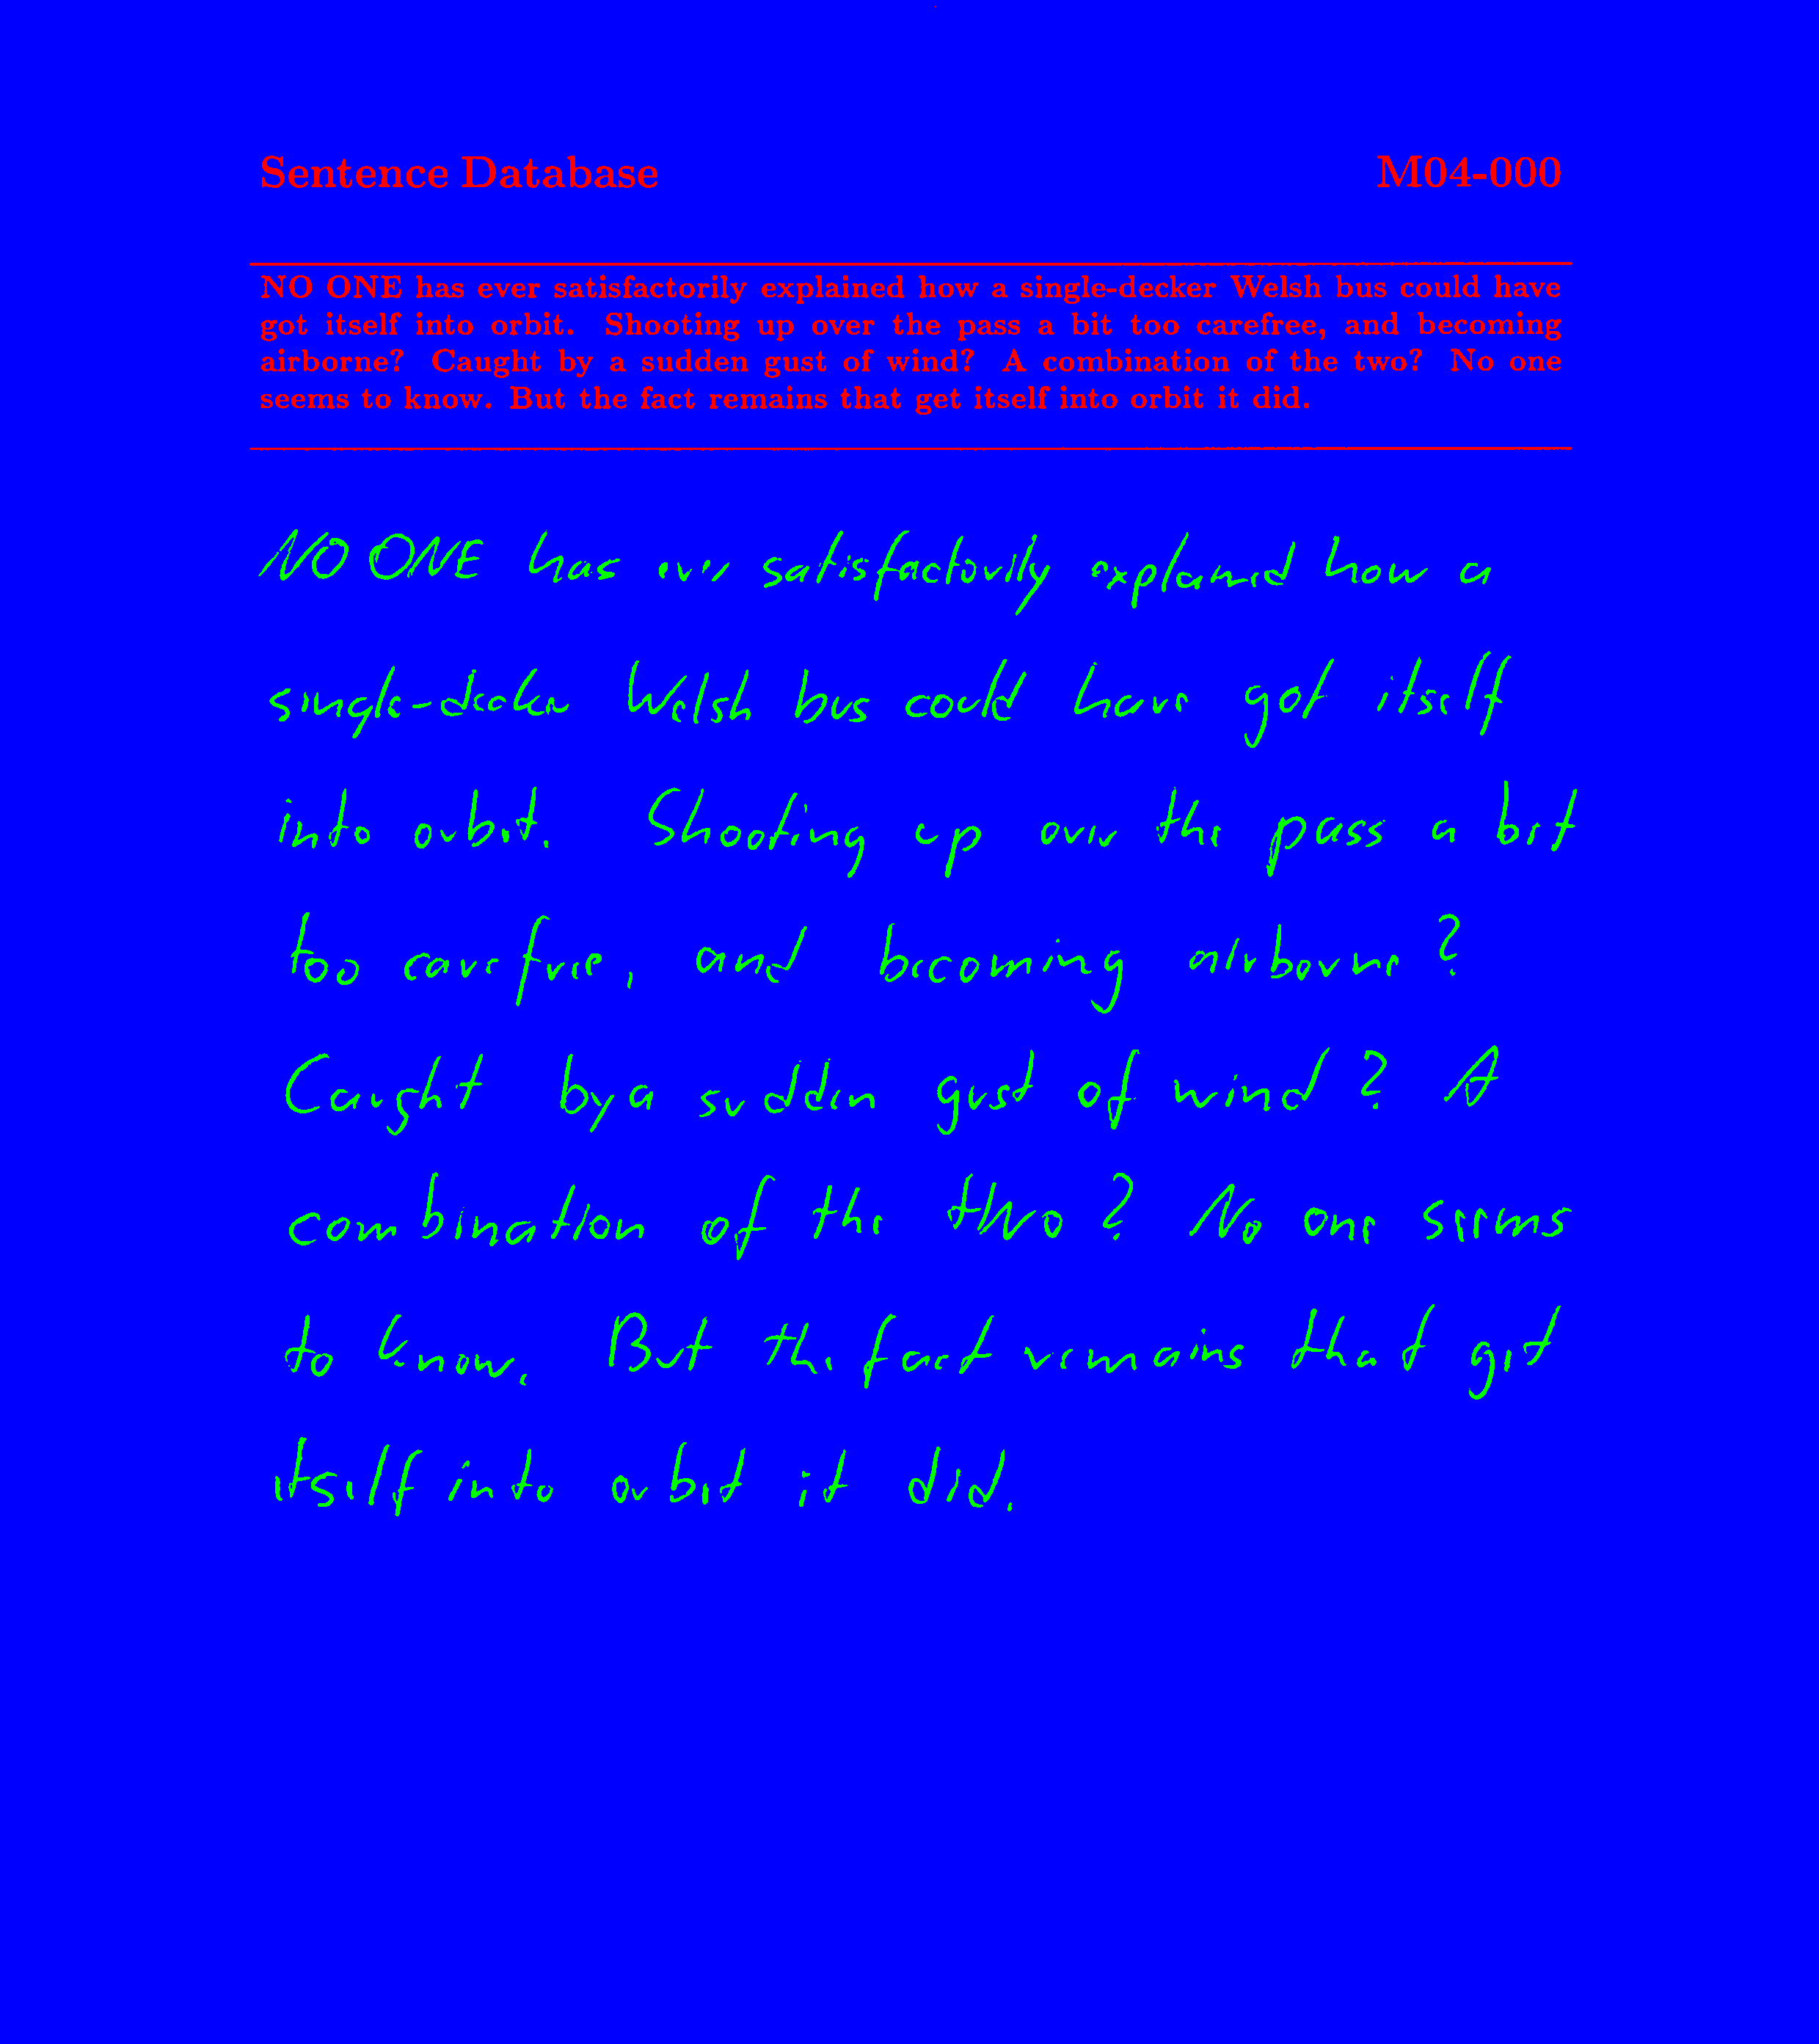 Sentence Database M04-000
NO ONE has ever satisfactorily explained how a single-decker Welsh bus could have
got itself into orbit. Shooting up over the pass a bit too carefree, and becoming
airborne? Caught by a sudden gust of wind? A combination of the two? No one
seems to know. But the fact remains that get itself into orbit it did.
NO ONE has ever satisfactorily explained how a
single-decker Welsh bus could have got itself
into orbit. Shooting up over the pass a bit
too carefree, and becoming airborne?
Caught by a sudden gust of wind? A
combination of the two? No one seems
to know. But the fact remains that get
itself into orbit it did.